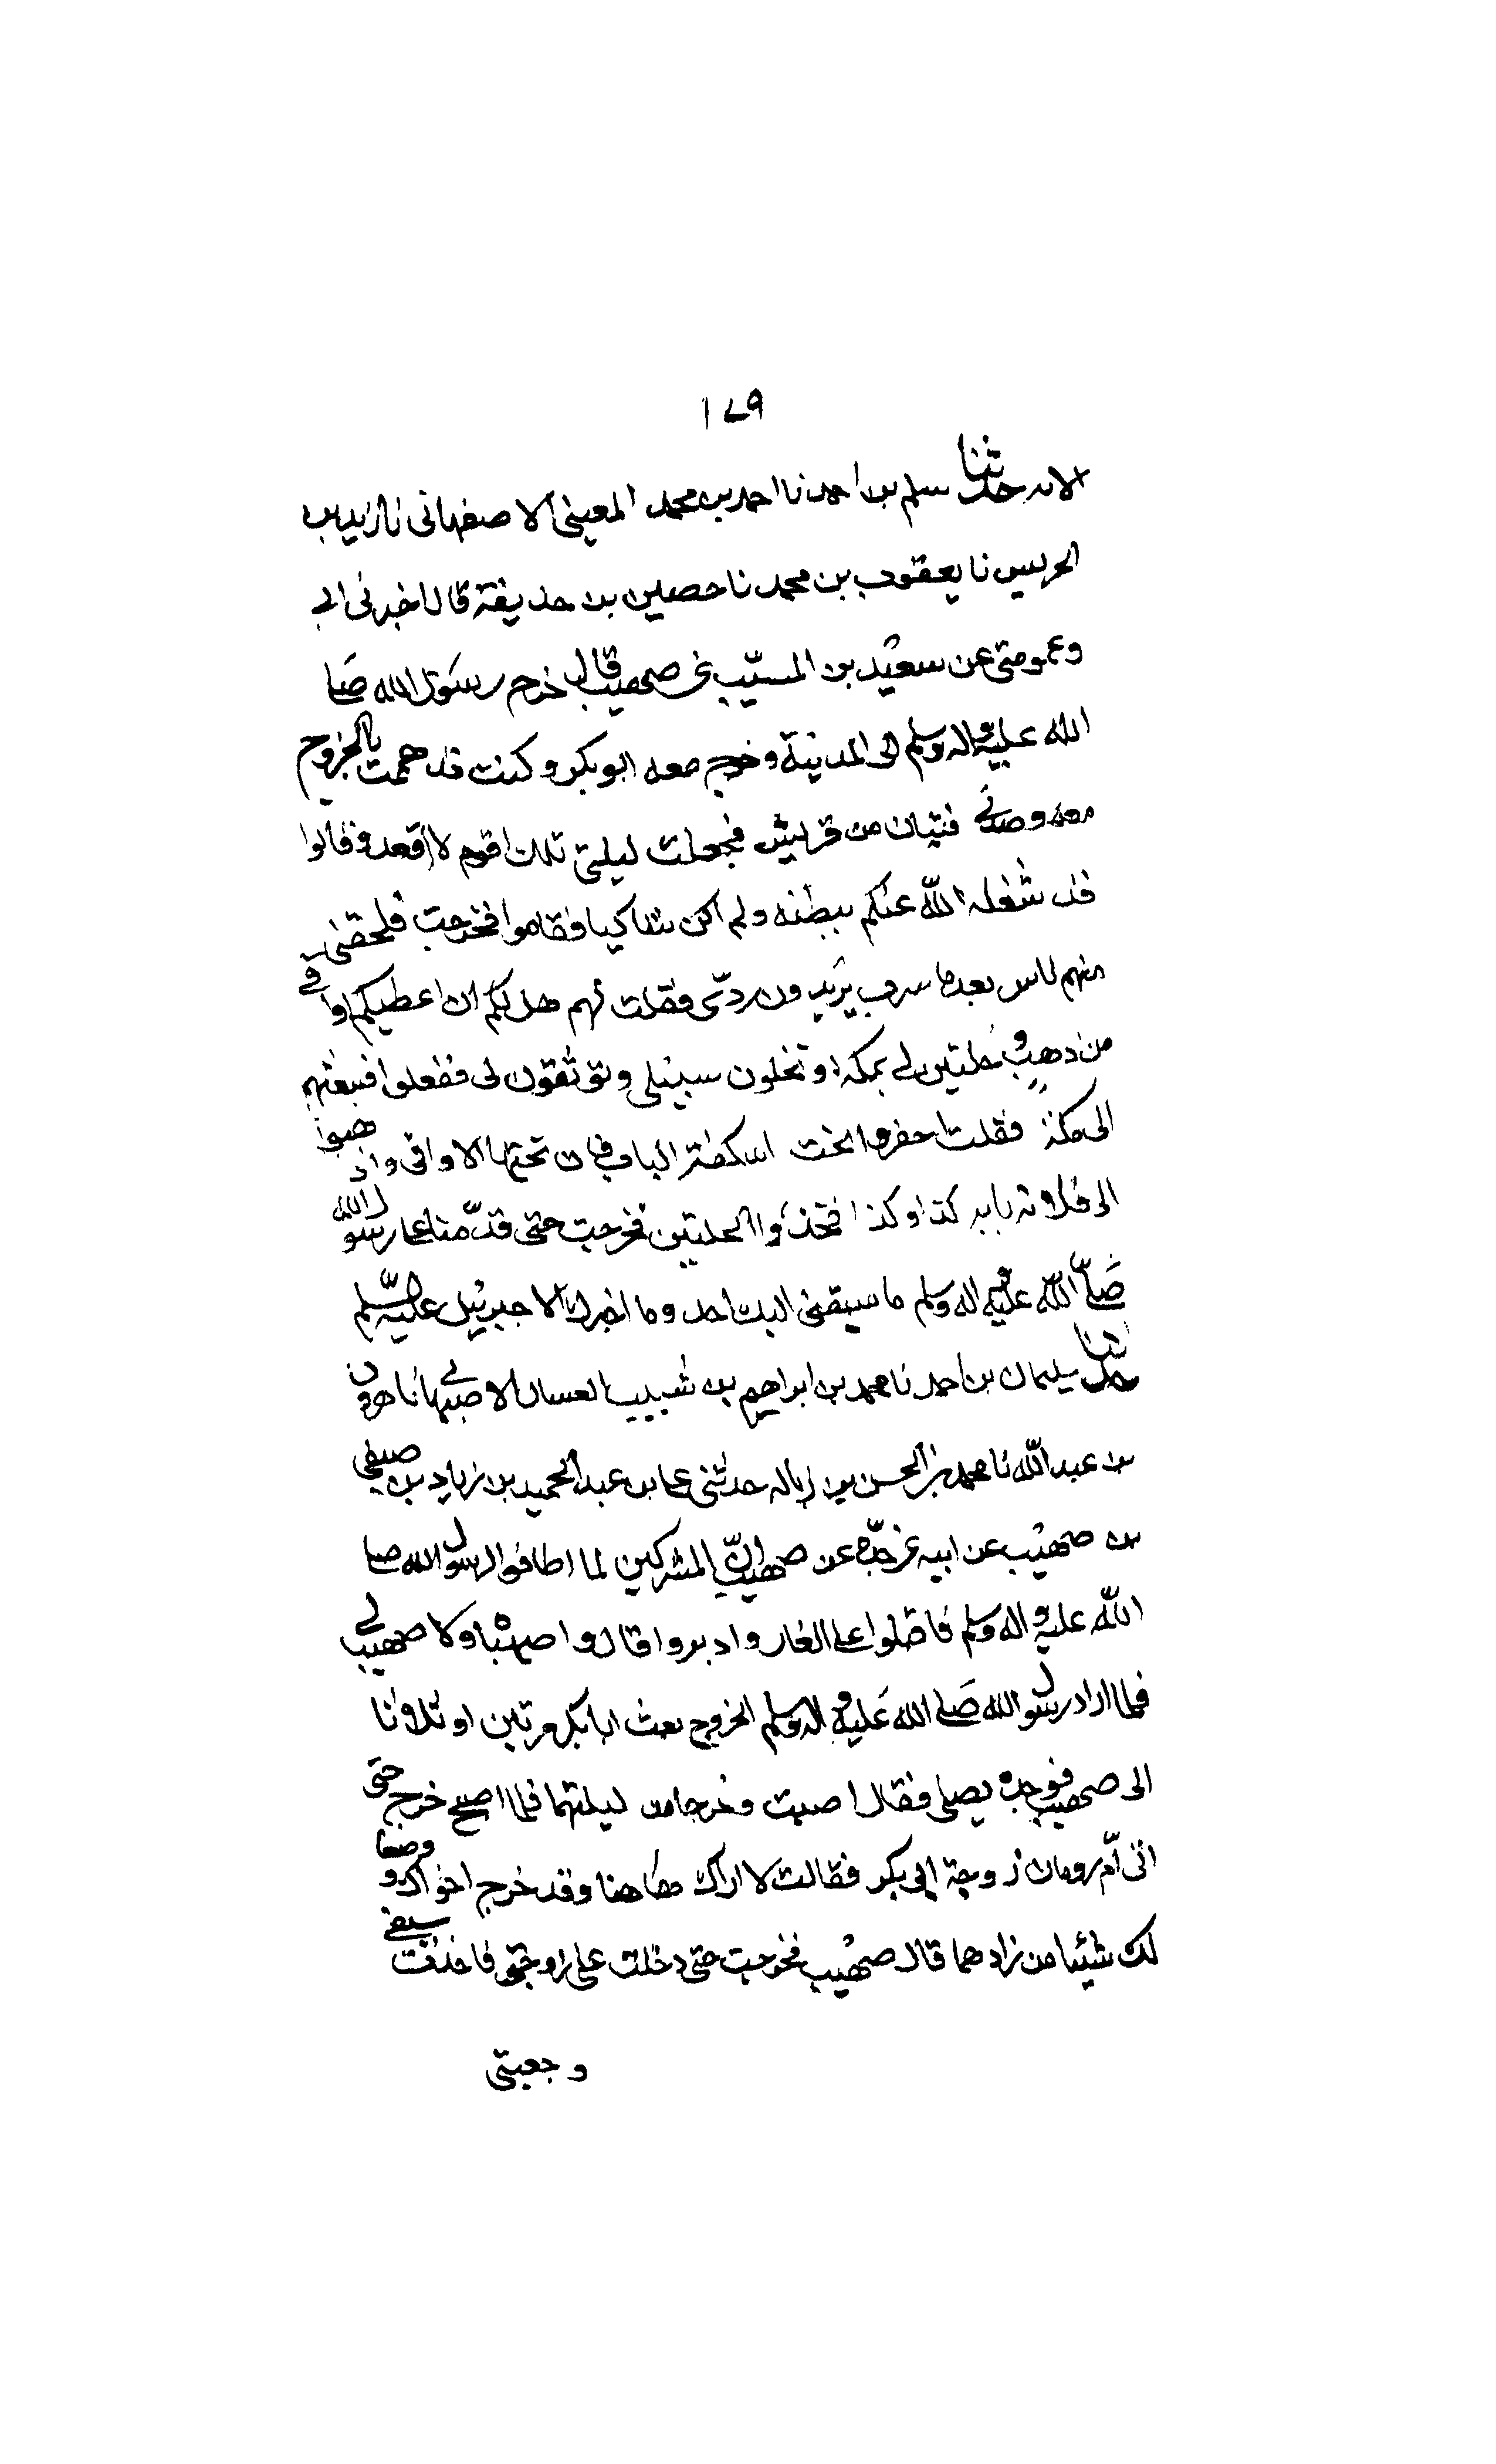 ١٧٩
الاية حدثنا سليم بن احمد نا احمد بن محمد المعينى الاصفهانى نا زيد بن
الحريس نا يعقوب بن محمد نا حصين بن حذيفة قال اخبرنى ابى
وعمومتى عن سعيد بن المسيّب عن صهيب قال خرج رسول الله صلى
الله عليه واله وسلم الى المدينة وخرج معه ابو بكر وكنت قد هممت بالخروج
معه وصدنى فتيان من قريش فجعلت ليلتى تلك اقوم لا اقعد وقالوا
قد شغله الله عنكم ببطنه ولم اكن شاكيا فقاموا فخرجت فلحقنى
منهم ناس بعد ما سرت يريدون ردّى فقلت لهم هل لكم ان اعطيكم اواقى
من ذهب وحلتين لى بمكة وتخلون سبيلى وتوثقون لى ففعلوا فتبعتهم
الى مكة فقلت احفروا تحت اسكفة الباب فان تحتها الاواقى واذهبوا
الى فلانة باية كذا وكذا فخذوا الحلتين فخرجت حتى قدمنا على رسول الله
صلى الله عليه واله وسلم ما سبقنى اليك احد وما اخبرك الا جبرئيل عليه السلم
حدثنا سليمان بن احمد نا محمد بن ابراهيم بن شبيب العسال الاصبهانى نا هرون
بن عبد الله نا محمد بن الحسن بن زبالة حدثنى على بن عبد الحميد بن زياد بن صيفى
بن صهيب عن ابيه عن جدّه عن صهيب انّ المشركين لما اطافوا برسول الله صلى
الله عليه واله وسلم فاقبلوا على الغار وادبروا قال واصهيباه ولا صهيب لى
فلما اراد رسول الله صلى الله عليه واله وسلم الخروج بعث ابا بكر مرتين او ثلاثا
الى صهيب فوجده يصلى فقال اصبت وخرجا من ليلتهما فلما اصبح خرج حتى
اتى امّ رومان زوجة ابى بكر فقالت لا اراك هاهنا وقد خرج اخواك ووضعا
لك شيئا من زادهما قال صهيب فخرجت حتى دخلت على زوجتى فاخذت سيفى
وجعبتى